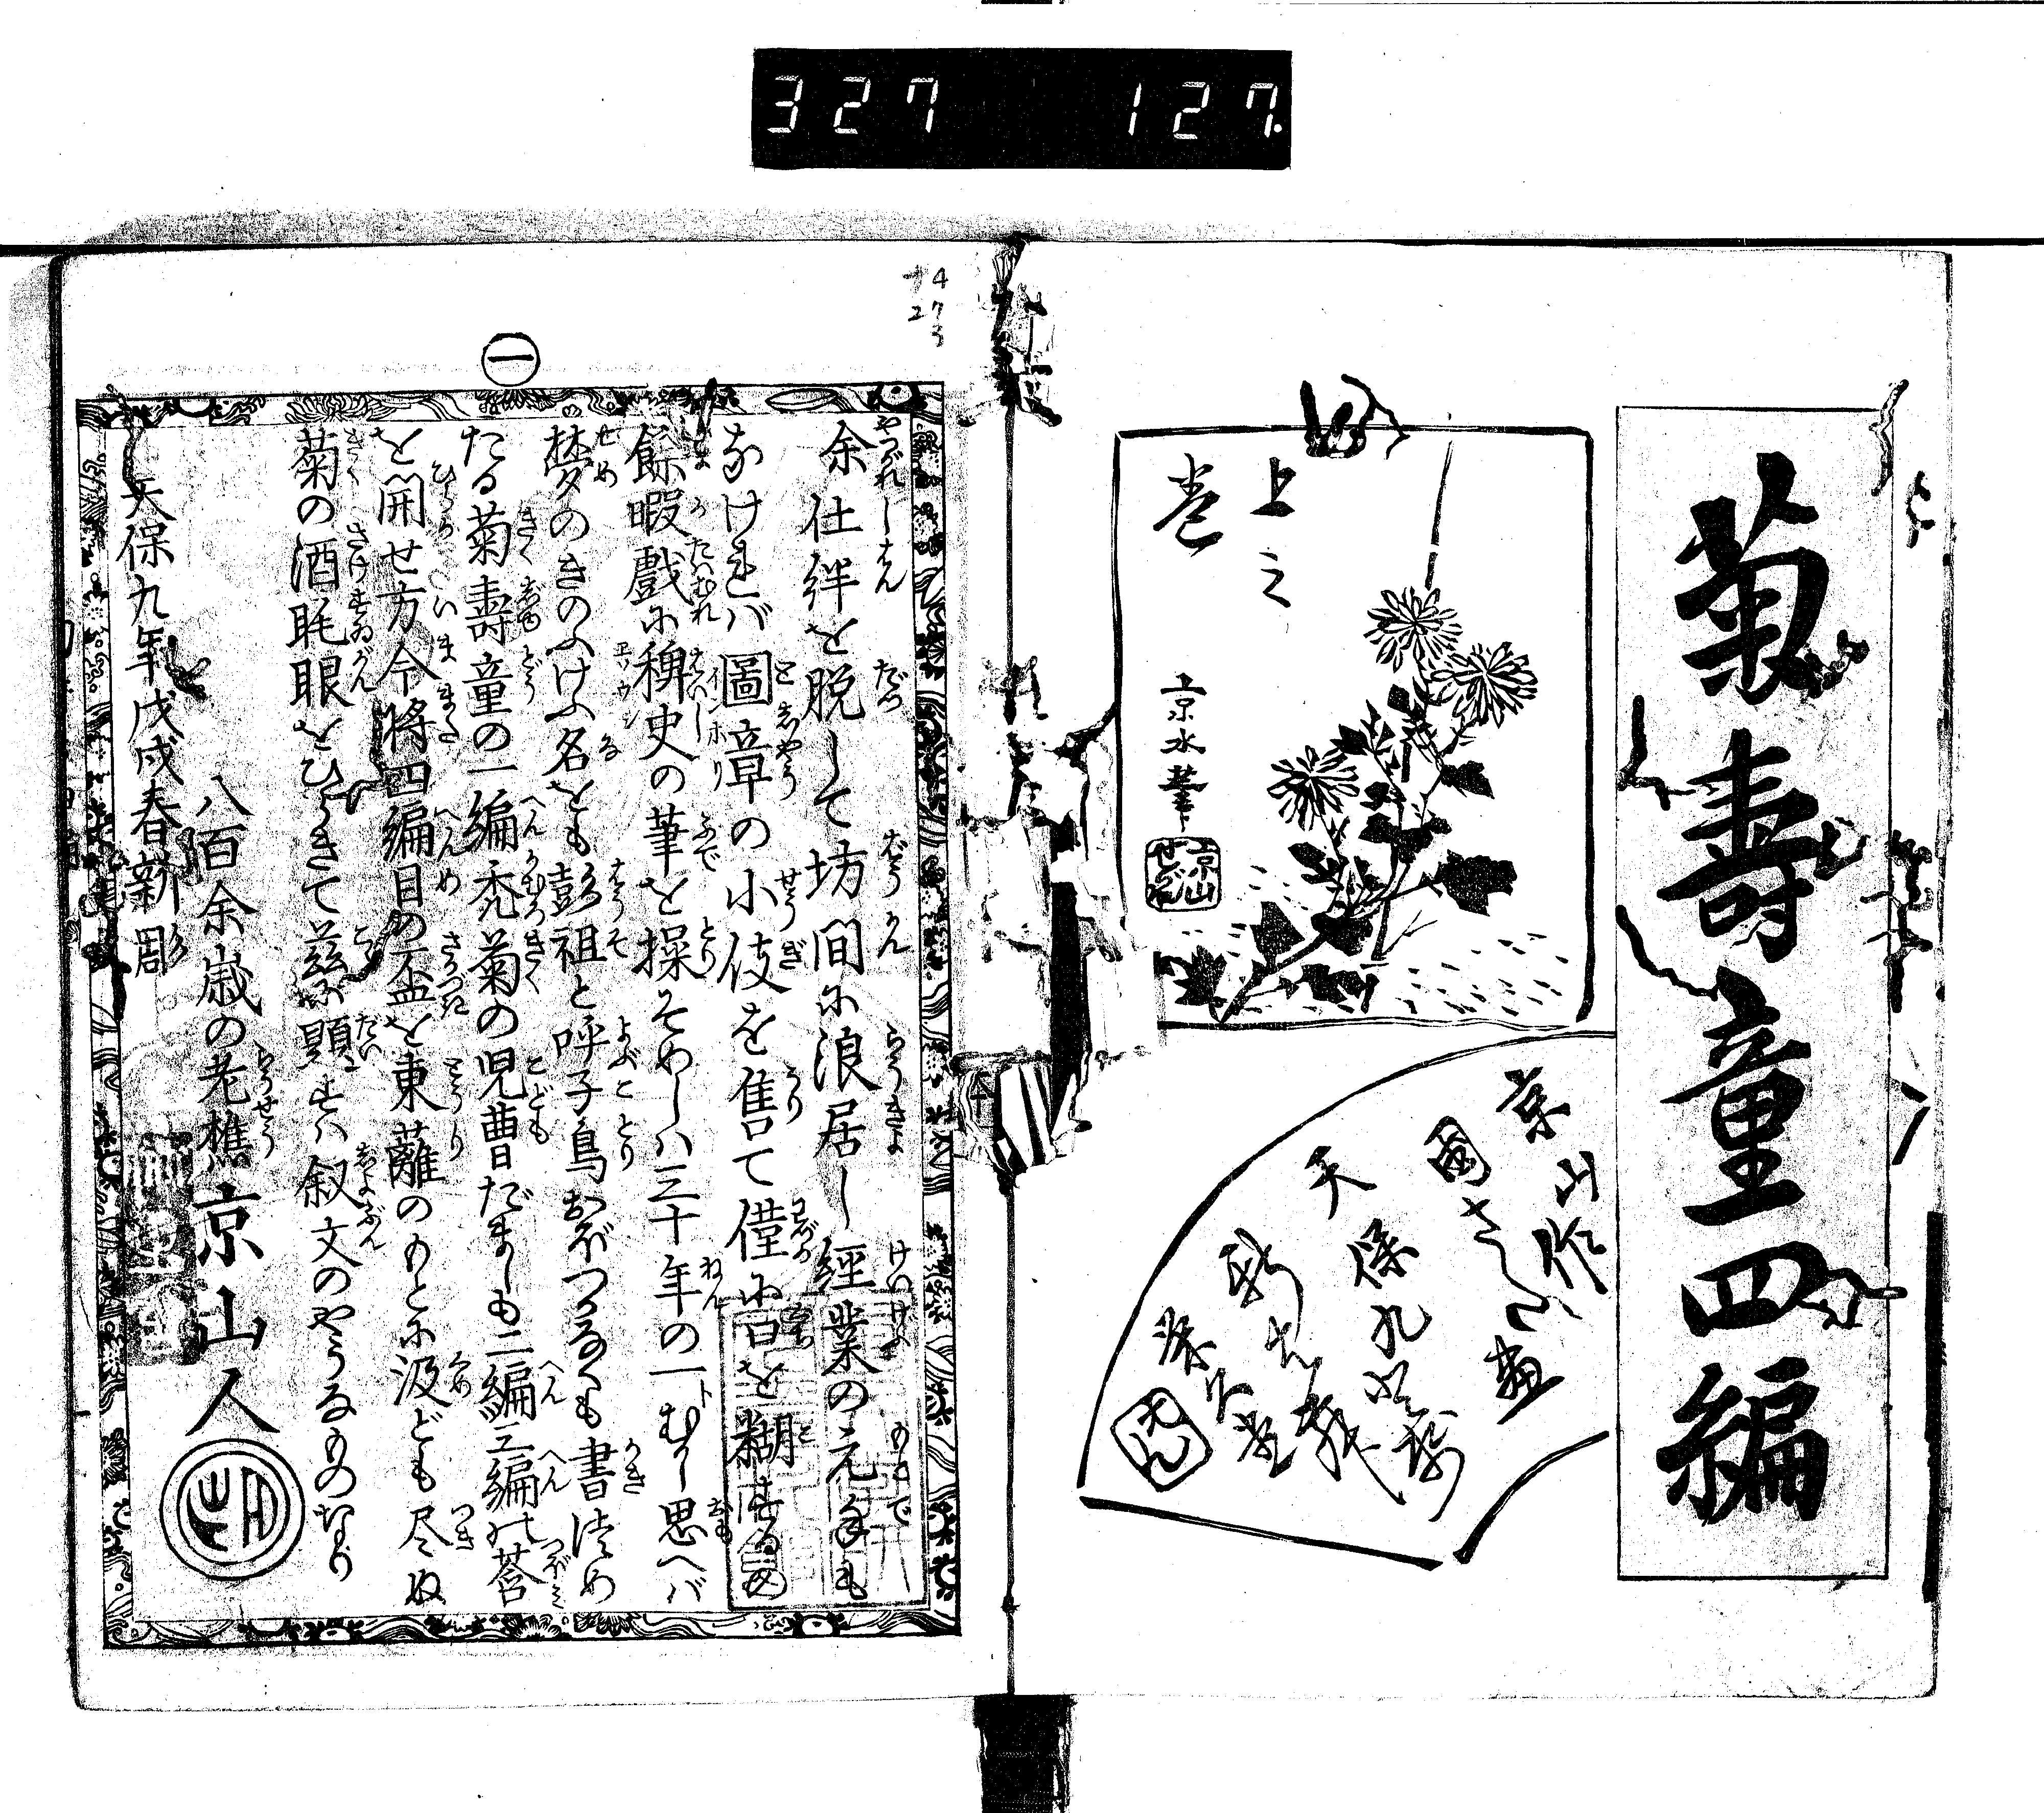 327 127.
菊壽童四編
上之
巻
京水筆
京山
せうぞう
京山作
国さだ画
天保九
一
余仕絆を脱して坊間に浪居し經業の元手も
なけれバ圖章の小伎を售て僅に口を糊する
餘暇戯に稗史の筆を操そめしハ三十年の一むかし思へバ
梦のきのふけふ名をも彭祖と呼子鳥おぼつかなくも書つめ
たる菊壽童の一編禿菊の児曹だましも二編三編の莟
を開せ方今将四編目の盃を東籬のもとに汲ども尽ぬ
菊の酒酕眼をひらきて茲に題すハ叙文のやうなるものなり
八百余歳の老樵 京山人
天保九年戊戌春新彫